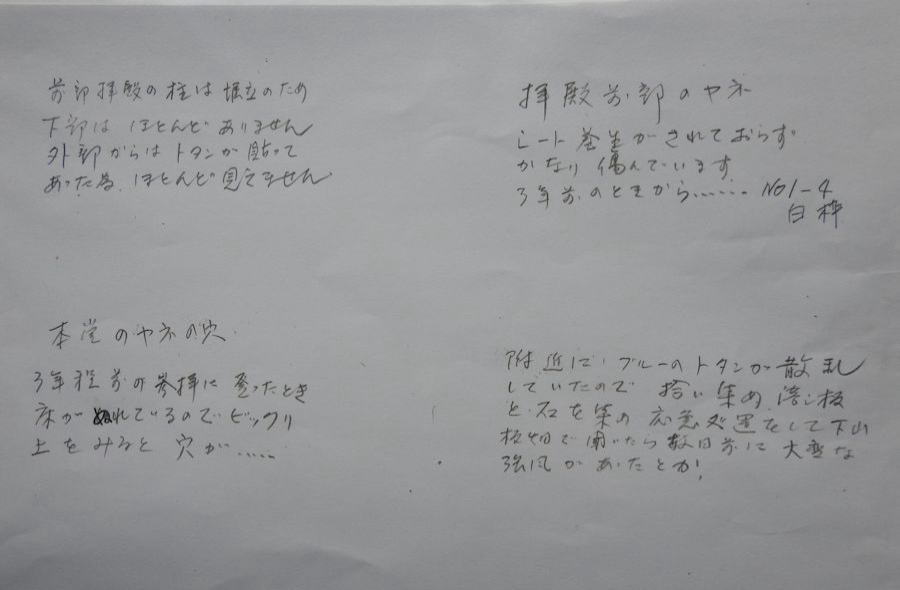 前部拝殿の柱は堀立のため
下部はほとんどありません
外部からはトタンが貼って
あった為、ほとんど見えません
拝殿前部のヤネ
シート養生がされておらず
かなり傷んでいます
3年前のときから…… No1-4
白枠
本堂のヤネの穴
3年程前の参拝に登ったとき
床がぬれているのでビックリ
上をみると穴が……
附近にブルーのトタンが散乱
していたので 拾い集め
と石を集め応急処置をして下山
で聞いたら数日前に大変な
強風があったとか!